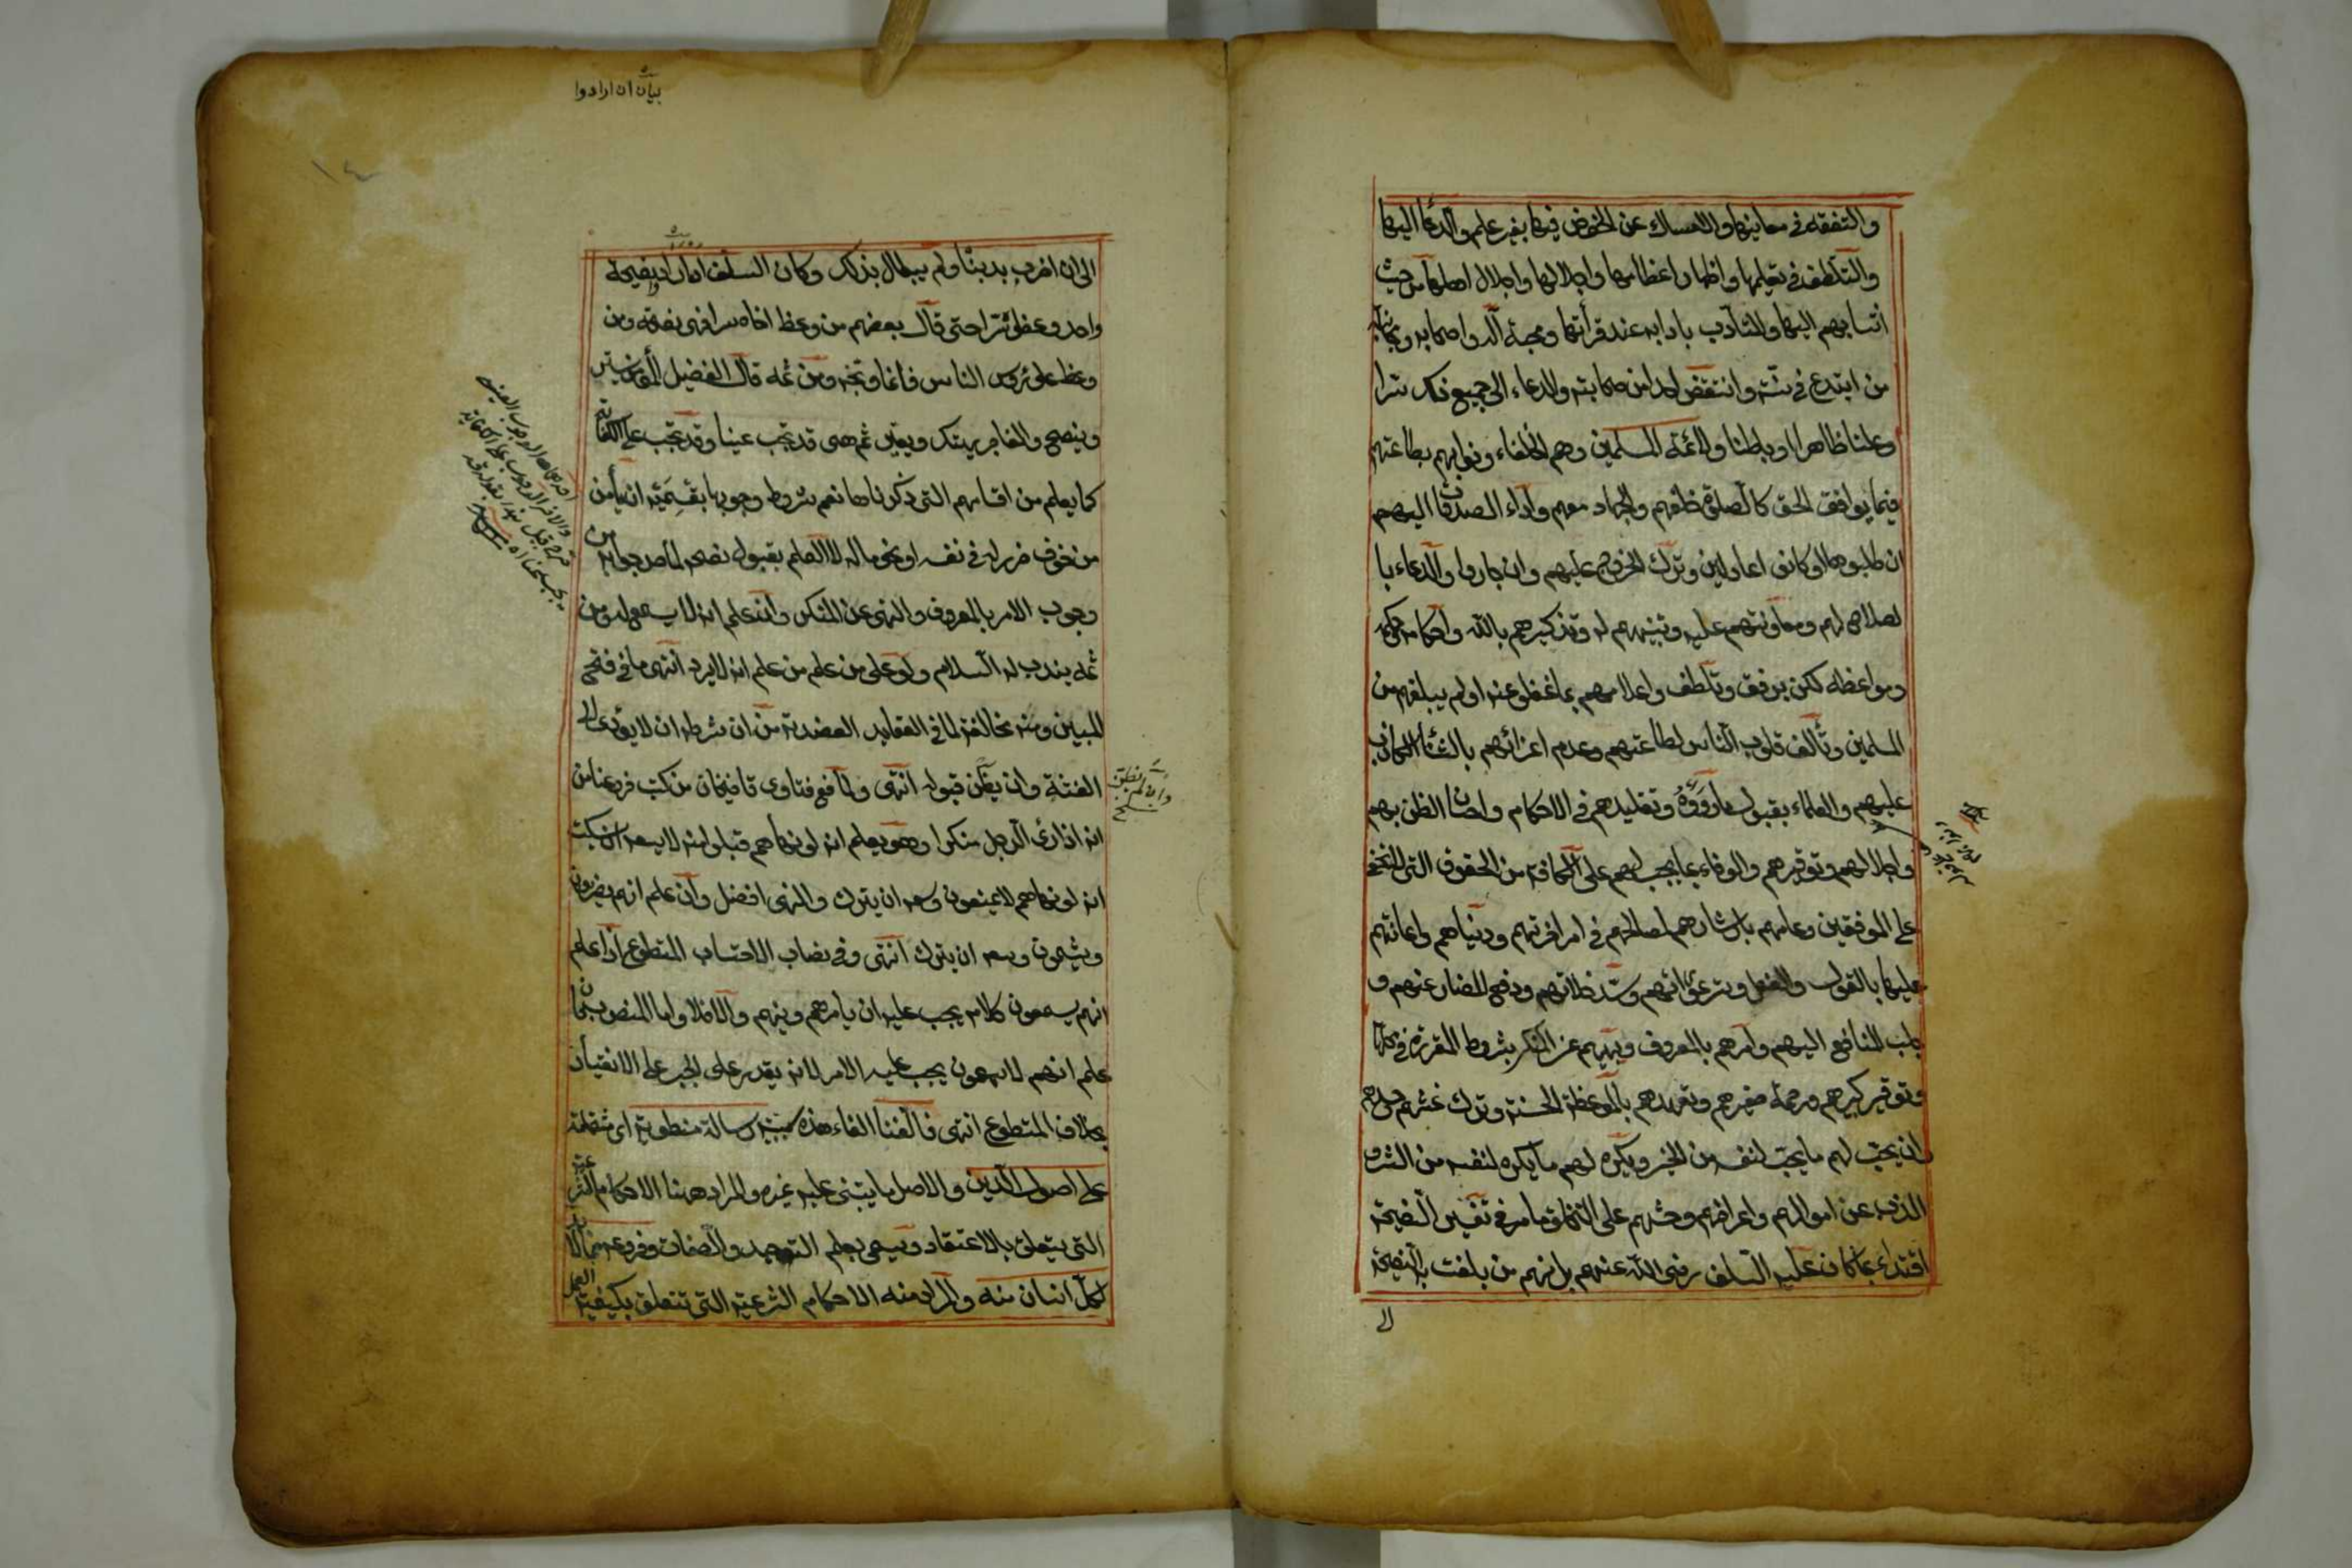 والتفقه في معانيها والامساك عن الخوض فيها بغير علم والدعا اليها
والتلطف في تعليمها واظهار اعظامها واجلالها واجلال اهلها من حيث
انتسابهم اليها والتأدب بادابه عند قرأتها ومحبة آله واصحابه ومجانبة
من ابتدع في سنته وانتقض احدا من صحابته والدعاء الى جميع ذلك سرا
وعلنا ظاهرا وباطنا ولائمة المسلمين وهم الخلفاء ونوابهم بطاعتهم
فيما يوافق الحق كالصلوة خلفهم والجهاد معهم واداء الصدقات اليهم
ان طلبوها او كانوا عادلين وترك الخروج عليهم وان جاروا والدعاء با
لصلاح لهم ومعاونتهم عليه وتنبيههم له وتذكيرهم بالله واحكامه وحكمه
ومواعظه لكن برفق وتلطف واعلامهم بما غفلوا عنه او لم يبلغهم من
المسلمين وتألف قلوب الناس لطاعتهم وعدم اغرائهم بالثناء الكاذب
عليهم والعلماء بقبول ما رووه وتقليدهم في الاحكام واحسان الظن بهم
واجلالهم وتوقيرهم والوفاء بما يجب لهم على الكافة من الحقوق التي لا تخفى
على الموفقين وعامتهم بارشادهم لمصالحهم في امر اخرتهم ودنياهم واعانتهم
عليها بالقول والفعل وستر عوراتهم وسد خلاتهم ودفع المضار عنهم و
جلب المنافع اليهم وامرهم بالمعروف ونهيهم عن المنكر بشروط المقررة في محلها
وتوقير كبيرهم ورحمة صغيرهم وتعهدهم بالموعظة الحسنة وترك غشهم وحسدهم
وان يحب لهم ما يحب لنفسه من الخير ويكره لهم ما يكره لنفسه من الشر و
الذب عن اموالهم واعراضهم وحثهم على التخلق بما مر في تفسير النصيحة
اقتداء بما كان عليه السلف رضي الله عنهم بل انهم من بلغت به النصيحة
الى
بيان ان ارادوا
الى ان اضرب بدينا ولم يبال بذلك وكان السلف اذا اراد نصيحة
واحد وعظوه سرا حتى قال بعضهم من وعظ اخاه سرا فهي نصيحة ومن
وعظ على رؤس الناس فانما وبخه ومن ثمه قال الفضيل المؤمن يستر
وينصح والفاجر يهتك ويعير ثم هي قد تجب عينا وقد تجب على الكفاية
كما يعلم من اقسامهم التي ذكرناها نعم شروط وجوبها بقسميه ان يأمن
من خوف ضرر له في نفسه او نحو ماله لا العلم بقبول نصحه لما صرحوا به من
وجوب الامر بالمعروف والنهي عن المنكر وان علم انه لا يسمع له ومن
ثمه يندب له السلام ولو على من علم من علم انه لا يرد انتهى ما في فتح
المبين ومنه مخالفة لما في العقايد العضدية من ان شرطه ان لا يؤدي الى
الفتنة وان يظن قبوله انتهى ولما في فتاوى قاضيخان من كتب فروعنا من
انه اذا رأى الرجل منكرا وهو يعلم انه لو نهاهم قبلوا منه لا يسعه ان يسكت
انه لو نهاهم لا يمنعون وسعه ان يترك والنهي افضل وان علم انهم يضربون
ويشتمون وسعه ان يترك انتهى وفي نصاب الاحتساب المتطوع اذا علم
انهم يسمعون كلامه يجب عليه ان يأمرهم وينهم والا فلا واما المنصوب فان
علم انهم لا يسمعون يجب عليه الامر لانه يقدر على الجبر على الانقياد
بخلاف المتطوع انتهى فالفنا الفاء هذه رسالة منطوية اي مشتملة
على اصول الدين والاصل ما يبتنى عليه غيره والمراد ههنا الاحكام الشرعية
التي يتعلق بالاعتقاد ويسمى بعلم التوحيد والصفات وفروعه
لكل انسان منه والمراد منه الاحكام الشرعية التي تتعلق بكيفية العمل